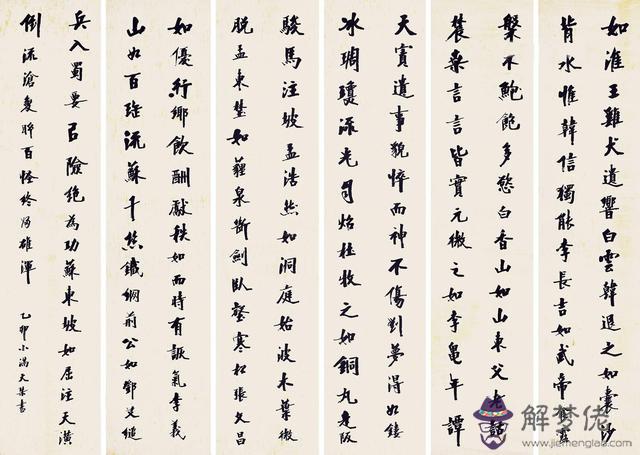 如淮王雞犬遺響白雲韓退之如囊沙
背水惟韓信獨能李長吉如武帝食露
槃不飽多慾白香山如山東父老話
農桑言言皆實元微之如李龜年譚
天寶遺事貌悴而神不傷劉夢得如鏤
冰琱瓊流光自焰杜牧之如銅丸走阪
駿馬注坡孟浩然如洞庭始波木葉微
脫孟東埜如薶泉斷劍臥壑寒松張文昌
如優行鄉飲酬獻秩如而時有詼氣李義
山如百流蘇千絲鐵網荊公如鄧艾縋
兵入蜀要㠯險絕為功蘇東坡如屈注天潢
倒流滄百怪終歸雄渾
乙卯小滿書
解梦佬
www.jiemenglao.com